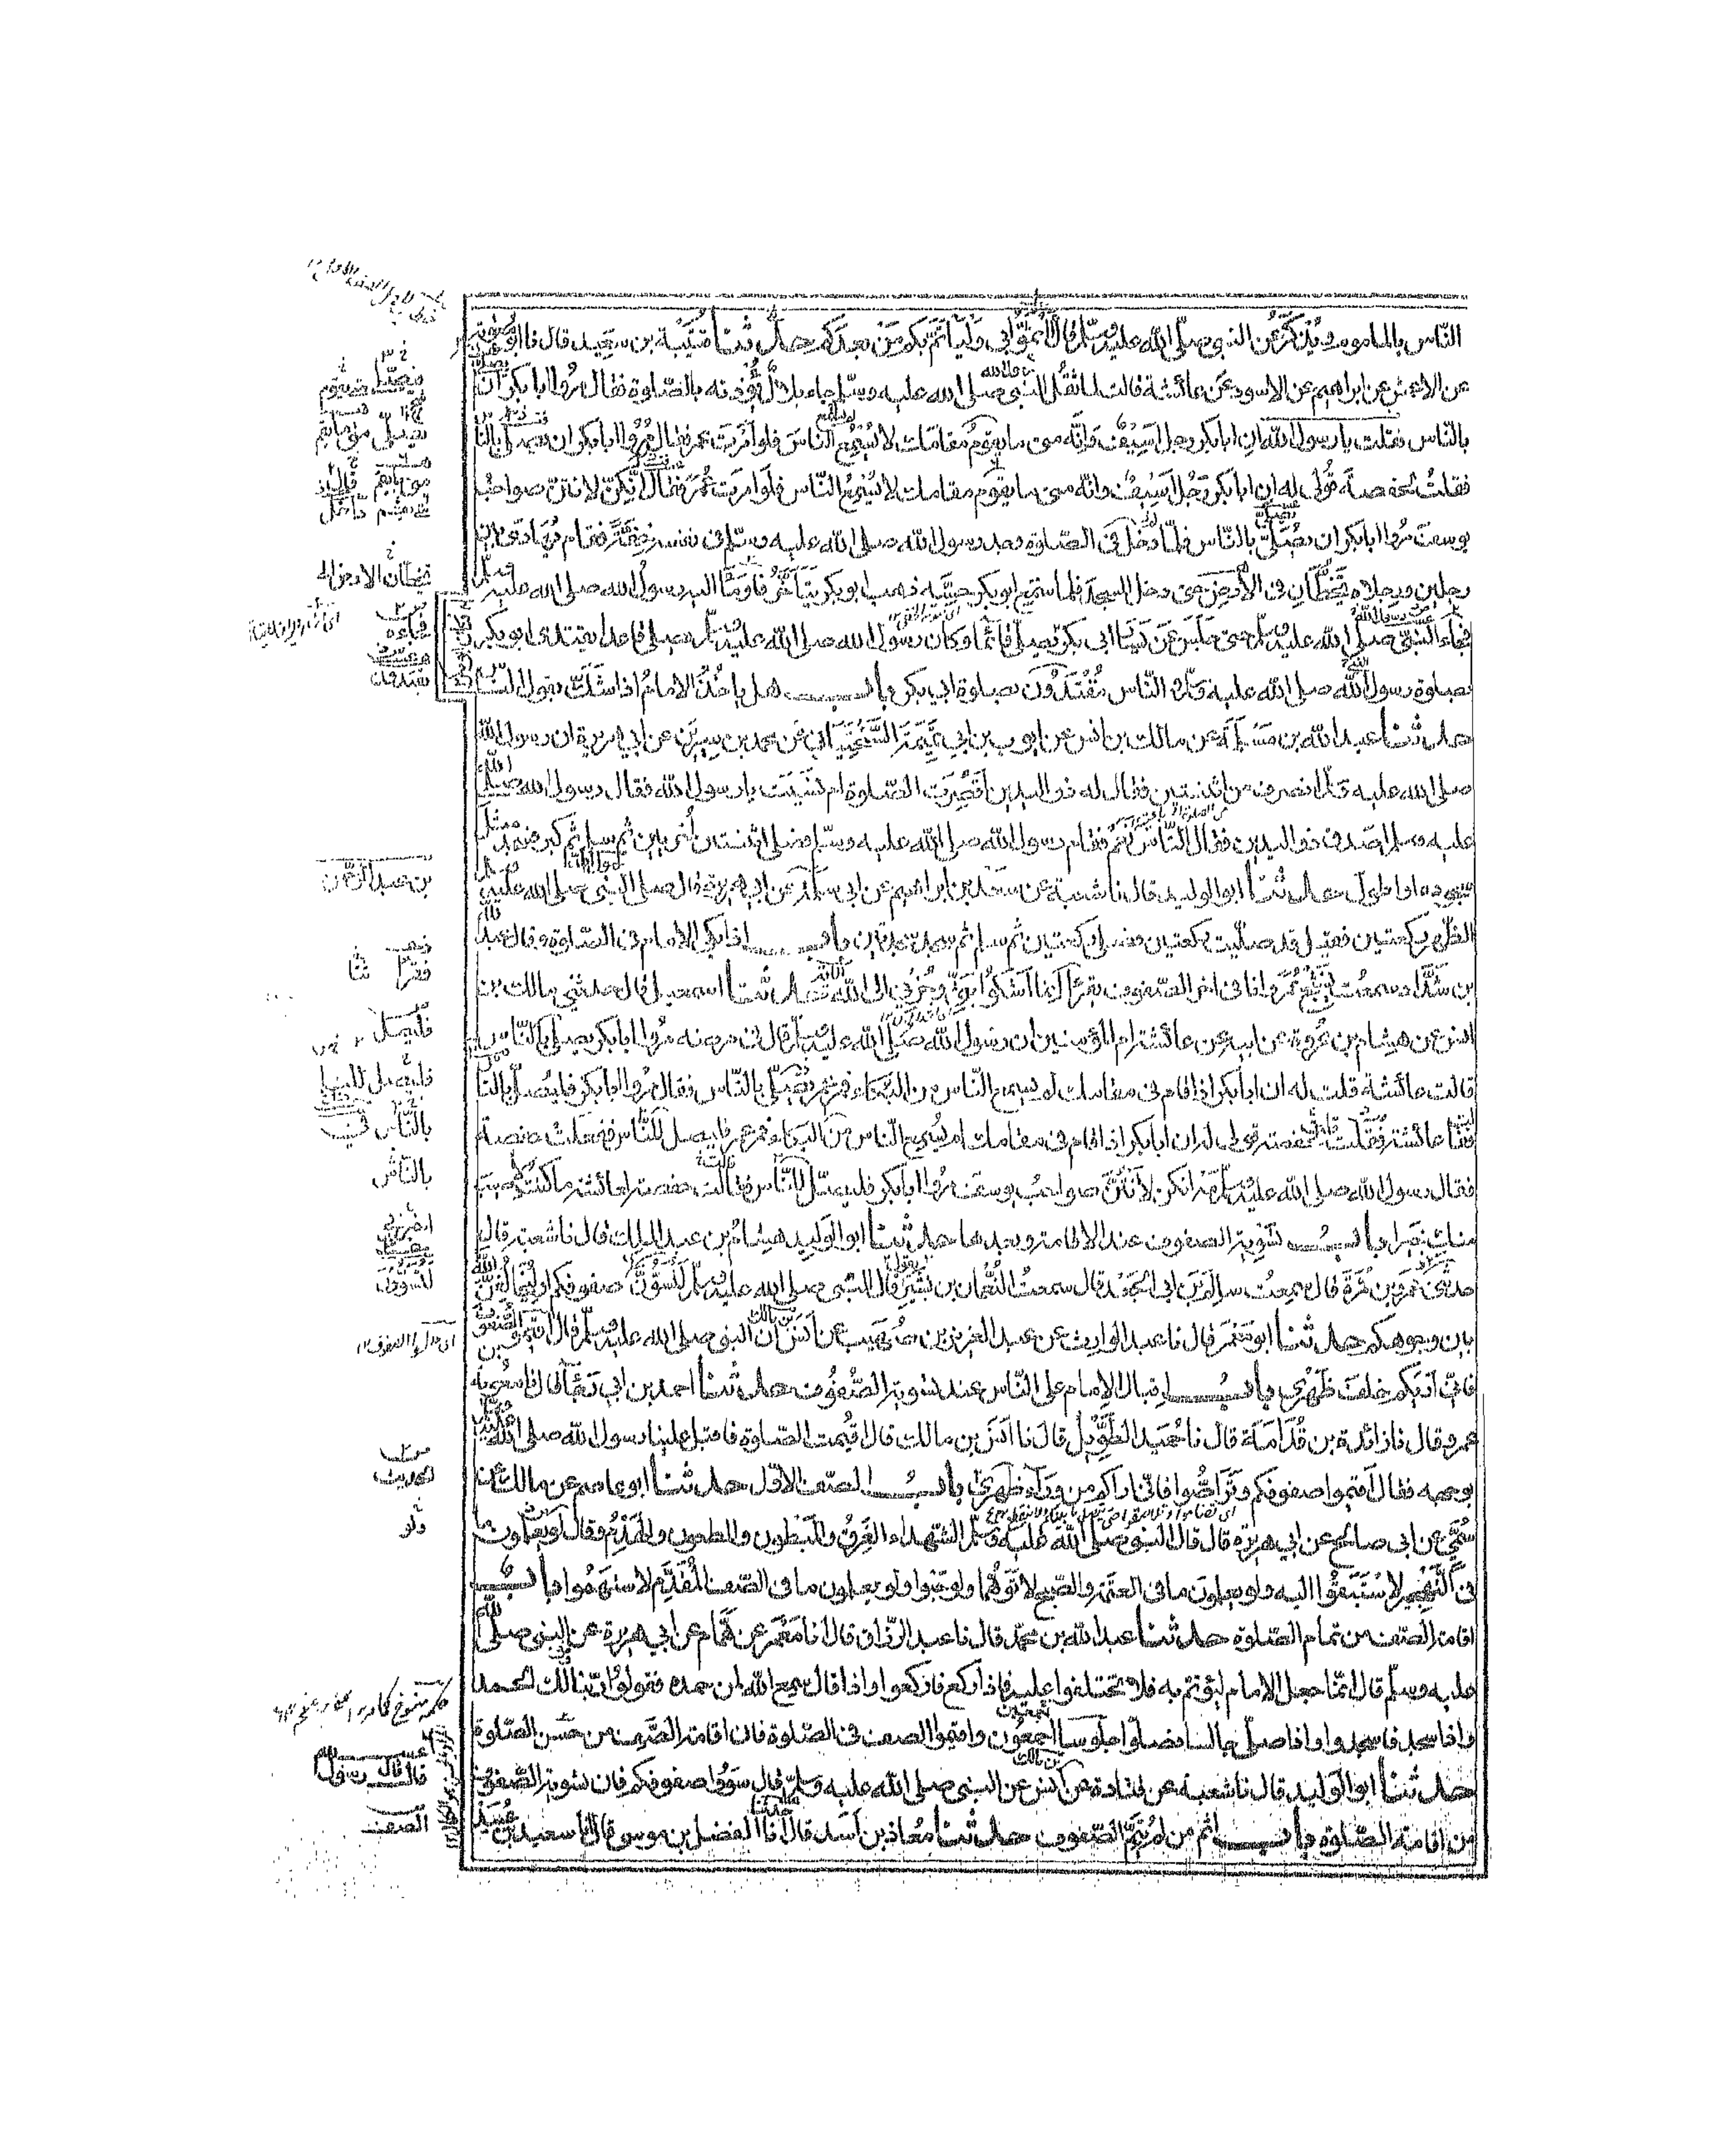 الناس بالماموم ويذكر عن النبي صلى الله عليه وسلم قال ائتموا بي وليأتم بكم من بعدكم حدثنا قتيبة بن سعيد قال نا ابو معوية
عن الاعمش عن ابراهيم عن الاسود عن عائشة قالت لما ثقل النبي صلى الله عليه وسلم جاء بلال يؤذنه بالصلوة فقال مروا ابا بكر ان يصلي
بالناس فقلت يا رسول الله ان ابا بكر رجل اسيف وانه متى ما يقوم مقامك لا يسمع الناس فلو امرت عمر فقال مروا ابا بكر ان يصلي بالناس
فقلت لحفصة قولي له ان ابا بكر رجل اسيف وانه متى ما يقوم مقامك لا يسمع الناس فلو امرت عمر فقال انكن لانتن صواحب
يوسف مروا ابا بكر ان يصلي بالناس فلما دخل في الصلوة وجد رسول الله صلى الله عليه وسلم في نفسه خفة فقام يهادى بين
رجلين ورجلاه يخطان في الارض حتى دخل المسجد فلما سمع ابو بكر حسه ذهب ابو بكر يتأخر فاومأ اليه رسول الله صلى الله عليه وسلم
فجاء النبي صلى الله عليه وسلم حتى جلس عن يسار ابي بكر فكان ابو بكر يصلي قائما وكان رسول الله صلى الله عليه وسلم يصلي قاعدا يقتدي ابو بكر
بصلوة رسول الله صلى الله عليه وسلم والناس مقتدون بصلوة ابي بكر باب هل ياخذ الامام اذا شك بقول الناس
حدثنا عبد الله بن مسلمة عن مالك بن انس عن ايوب بن ابي تميمة السختياني عن محمد بن سيرين عن ابي هريرة ان رسول الله
صلى الله عليه وسلم انصرف من اثنتين فقال له ذو اليدين اقصرت الصلوة ام نسيت يا رسول الله فقال رسول الله صلى الله
عليه وسلم اصدق ذو اليدين فقال الناس نعم فقام رسول الله صلى الله عليه وسلم فصلى اثنتين اخريين ثم سلم ثم كبر فسجد مثل
سجوده او اطول حدثنا ابو الوليد قال نا شعبة عن سعد بن ابراهيم عن ابي سلمة عن ابي هريرة قال صلى النبي صلى الله عليه وسلم
الظهر ركعتين فقيل قد صليت ركعتين فصلى ركعتين ثم سلم ثم سجد سجدتين باب اذا بكى الامام في الصلوة وقال عبد الله
بن شداد سمعت نشيج عمر وانا في اخر الصفوف يقرأ انما اشكوا بثي وحزني الى الله حدثنا اسمعيل قال حدثني مالك بن
انس عن هشام بن عروة عن ابيه عن عائشة ام المؤمنين ان رسول الله صلى الله عليه وسلم قال في مرضه مروا ابا بكر يصلي بالناس
قالت عائشة قلت له ان ابا بكر اذا قام في مقامك لم يسمع الناس من البكاء فمر عمر يصلي بالناس فقال مروا ابا بكر فليصل بالناس
فقالت عائشة فقلت لحفصة قولي له ان ابا بكر اذا قام في مقامك لم يسمع الناس من البكاء فمر عمر فليصل للناس ففعلت حفصة
فقال رسول الله صلى الله عليه وسلم مه انكن لانتن صواحب يوسف مروا ابا بكر فليصل للناس فقالت حفصة لعائشة ما كنت لاصيب
منك خيرا باب تسوية الصفوف عند الاقامة وبعدها حدثنا ابو الوليد هشام بن عبد الملك قال نا شعبة قال
حدثني عمرو بن مرة قال سمعت سالم بن ابي الجعد قال سمعت النعمان بن بشير قال النبي صلى الله عليه وسلم لتسون صفوفكم او ليخالفن الله
بين وجوهكم حدثنا ابو معمر قال نا عبد الوارث عن عبد العزيز بن صهيب عن انس ان النبي صلى الله عليه وسلم قال اقيموا الصفوف
فاني اريكم خلف ظهري باب اقبال الامام على الناس عند تسوية الصفوف حدثنا احمد بن ابي رجاء قال نا معوية بن
عمرو قال نا زائدة بن قدامة قال نا حميد الطويل قال نا انس بن مالك قال اقيمت الصلوة فاقبل علينا رسول الله صلى الله عليه وسلم
بوجهه فقال اقيموا صفوفكم وتراصوا فاني اراكم من وراء ظهري باب الصف الاول حدثنا ابو عاصم عن مالك عن
سمي عن ابي صالح عن ابي هريرة قال قال النبي صلى الله عليه وسلم الشهداء الغرق والمبطون والمطعون والهدم وقال لو يعلمون ما
في التهجير لاستبقوا اليه ولو يعلمون ما في العتمة والصبح لاتوهما ولو حبوا ولو يعلمون ما في الصف المقدم لاستهموا باب
اقامة الصف من تمام الصلوة حدثنا عبد الله بن محمد قال نا عبد الرزاق قال انا معمر عن همام عن ابي هريرة عن النبي صلى الله
عليه وسلم قال انما جعل الامام ليؤتم به فلا تختلفوا عليه فاذا ركع فاركعوا واذا قال سمع الله لمن حمده فقولوا ربنا لك الحمد
واذا سجد فاسجدوا واذا صلى جالسا فصلوا جلوسا اجمعون واقيموا الصف في الصلوة فان اقامة الصف من حسن الصلوة
حدثنا ابو الوليد قال نا شعبة عن قتادة عن انس عن النبي صلى الله عليه وسلم قال سووا صفوفكم فان تسوية الصفوف
من اقامة الصلوة باب اثم من لم يتم الصفوف حدثنا معاذ بن اسد قال انا الفضل بن موسى قال نا سعيد بن عبيد
يخطان الارض
بن عبد الرحمن
فليصل
بالناس
الحديث
ولو
قال قال رسول الله
الصف